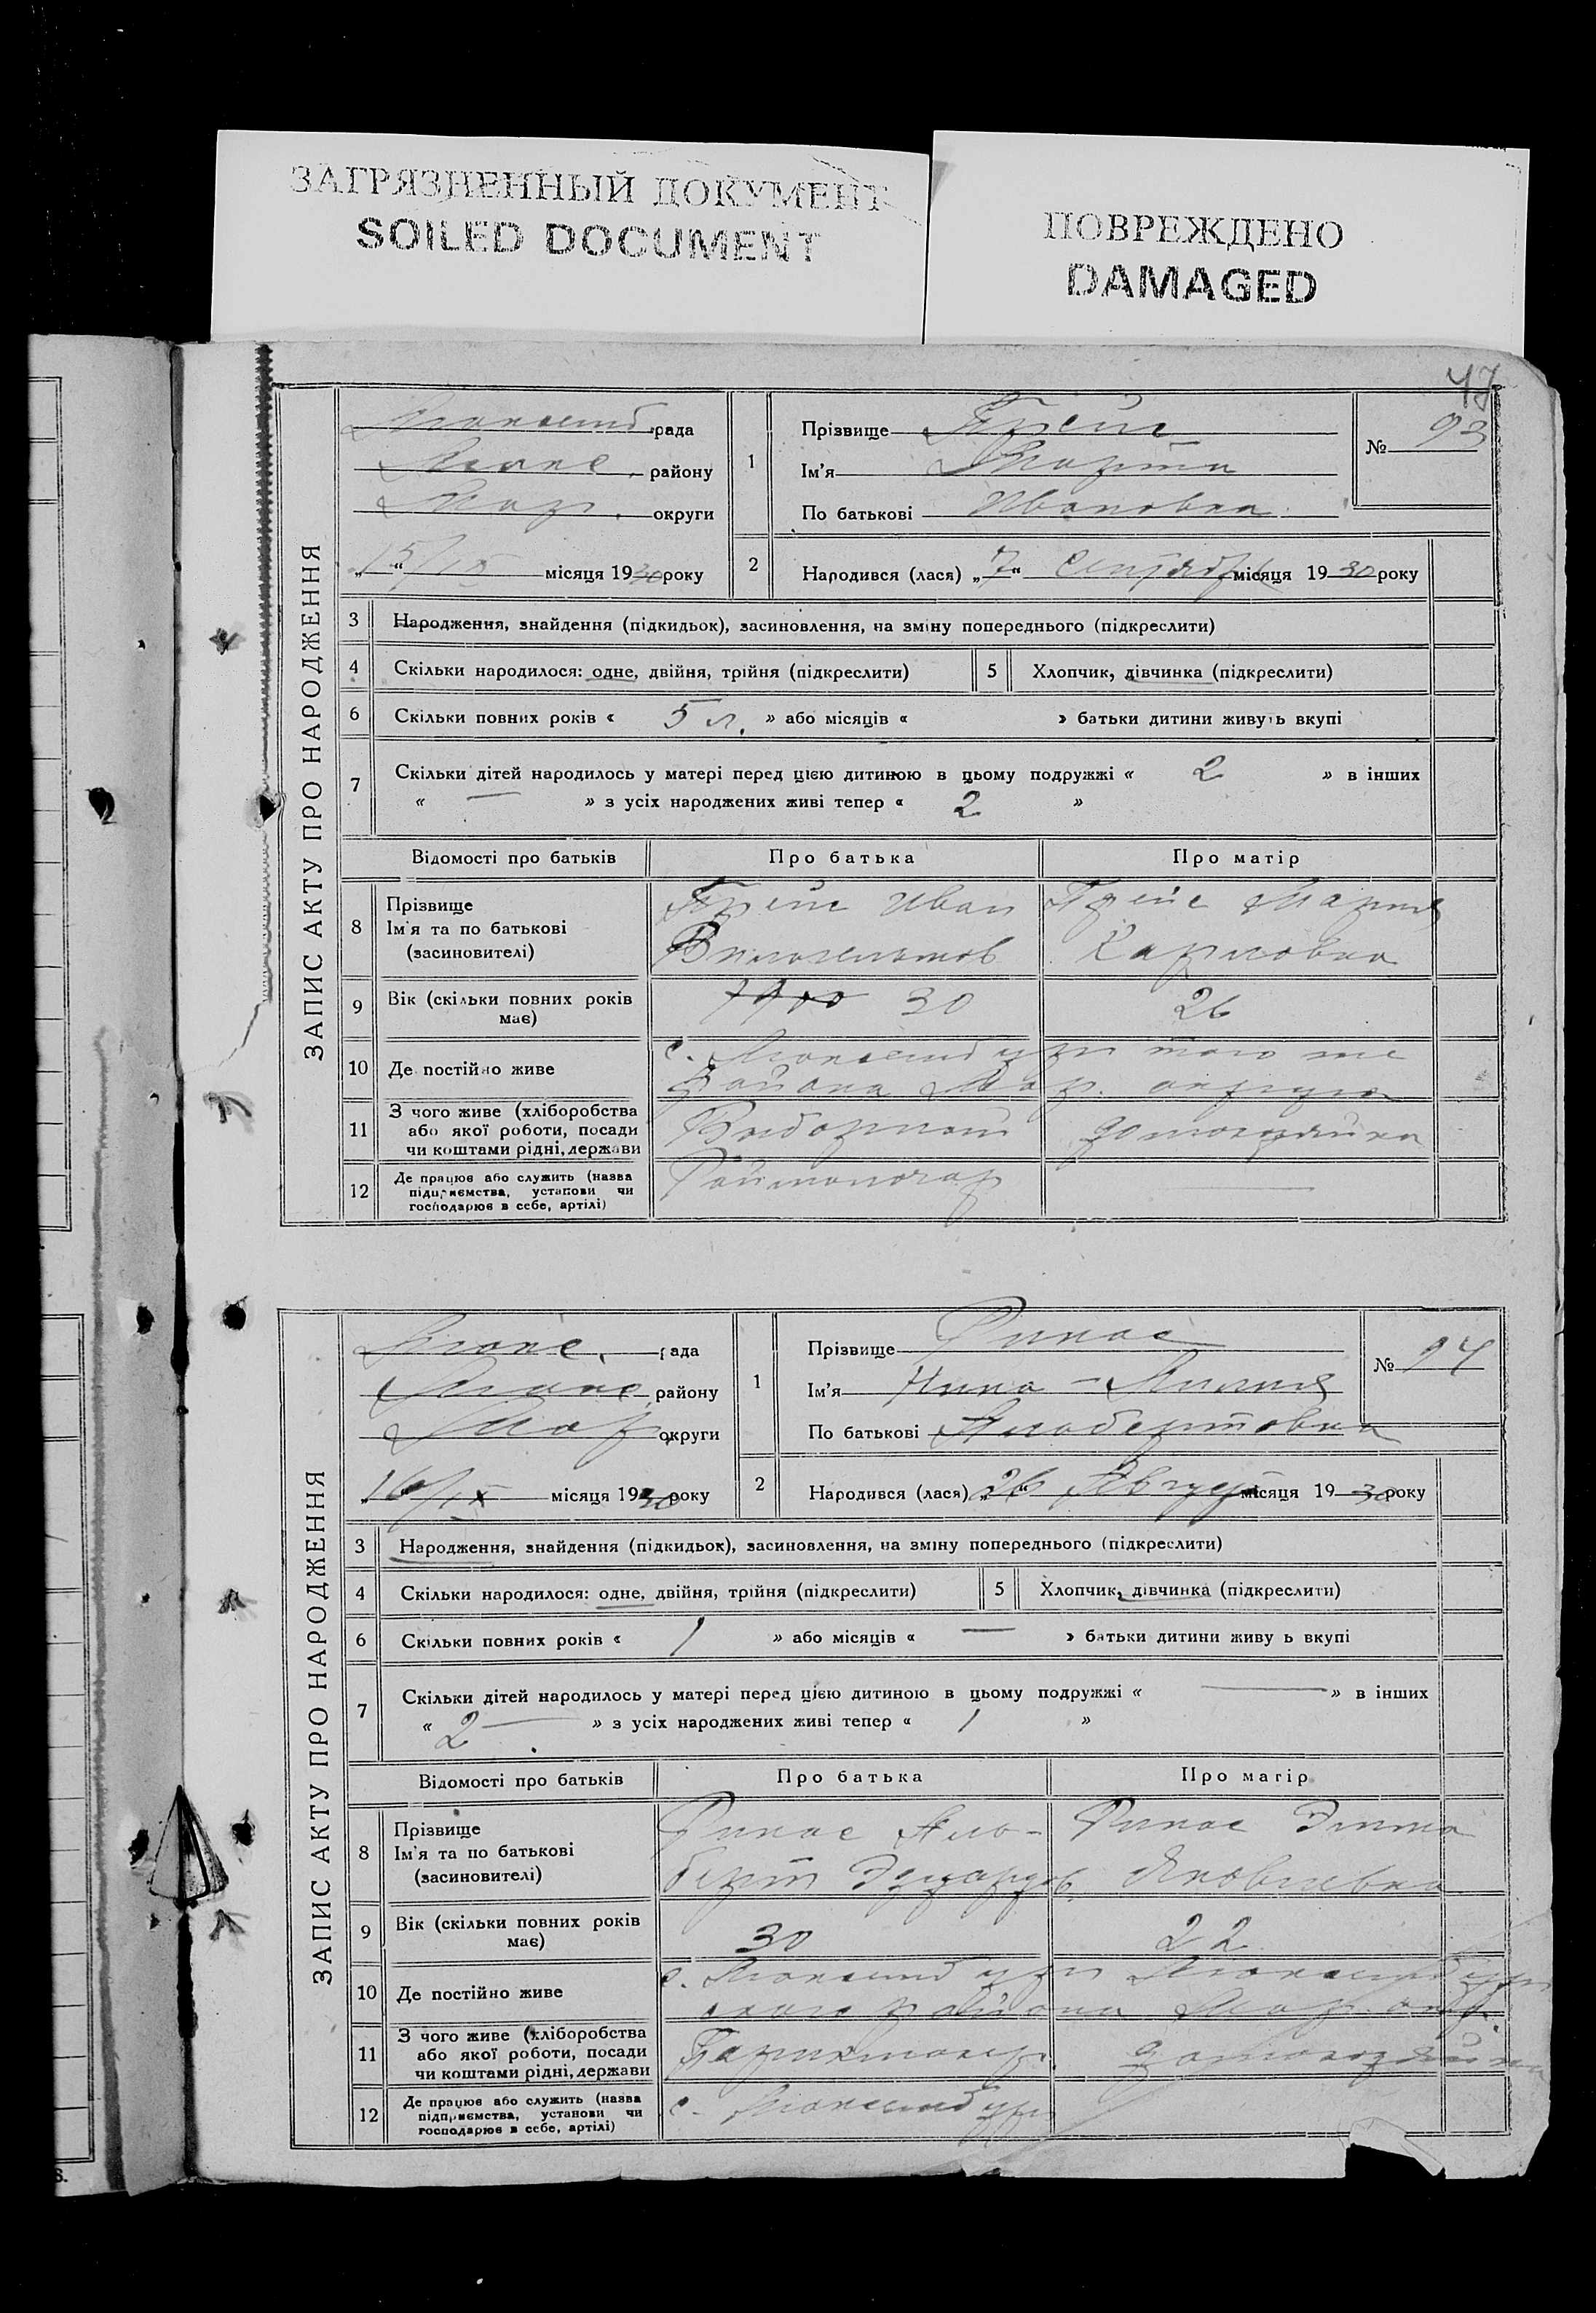 ЗАГРЯЗНЕННЫЙ ДОКУМЕНТ
SOILED DOCUMENT
ПОВРЕЖДЕНО
DAMAGED
47
ЗАПИС АКТУ ПРО НАРОДЖЕННЯ
Люксемб. рада
Люкс. району
Мар. округи
„15/IX“ місяця 1930 року
1
Прізвище
Ім'я Марта
По батькові Ивановна
№ 93
2 Народився (лася) „7“ Сентября місяця 1930 року
3 Народження, знайдення (підкидьок), засиновлення, на зміну попереднього (підкреслити)
4 Скільки народилося: одне, двійня, трійня (підкреслити) 5 Хлопчик, дівчинка (підкреслити)
6 Скільки повних років « 5 л. » або місяців « » батьки дитини живуть вкупі
7 Скільки дітей народилось у матері перед цією дитиною в цьому подружжі « 2 » в інших
« — » з усіх народжених живі тепер « 2 »
Відомості про батьків Про батька Про матір
8 Прізвище
Ім'я та по батькові
(засновителі)
Иван
Вильгельмов
Мария
Карловна
9 Вік (скільки повних років має) 1900 30 26
10 Де постійно живе с. Люксембург того же
района Мар. округа
11 З чого живе (хліборобства
або якої роботи, посади
чи коштами рідні, держави
Выборный домохозяйка
12 Де працює або служить (назва
підприємства, установи чи
господарює в себе, артілі)
—
ЗАПИС АКТУ ПРО НАРОДЖЕННЯ
Люкс. рада
Люкс. району
Мар. округи
„16/IX місяця 1930 року
1
Прізвище Риннас
Ім'я Нина - Лилия
По батькові Альбертовна
№ 94
2 Народився (лася) „26“ Август місяця 1930 року
3 Народження, знайдення (підкидьок), засиновлення, на зміну попереднього (підкреслити)
4 Скільки народилося: одне, двійня, трійня (підкреслити) 5 Хлопчик, дівчинка (підкреслити)
6 Скільки повних років « 1 » або місяців « — » батьки дитини живу ь вкупі
7 Скільки дітей народилось у матері перед цією дитиною в цьому подружжі « — » в інших
« 2 — » з усіх народжених живі тепер « 1 »
Відомості про батьків Про батька Про матір
8 Прізвище
Ім'я та по батькові
(засиновителі)
Аль-
берт Эдуардов.
Яковлевна
9 Вік (скільки повних років має) 30 22
10 Де постійно живе с. Люксембург Люксембург
ского района Мар. окр.
11 З чого живе (хліборобства
або якої роботи, посади
чи коштами рідні, держави
Парикмахер. домохозяйка
12 Де працює або служить (назва
підприємства, установи чи
господарює в себе, артілі)
с. Люксембург